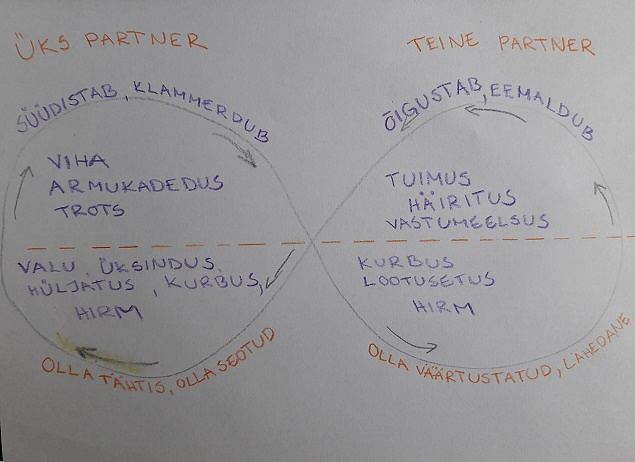 ÜKS PARTNER
SÜÜDISTAB, KLAMMERDUB
VIHA
ARMUKADEDUS
TROTS
VALU, ÜKSINDUS,
HÜLJATUS, KURBUS,
HIRM
OLLA TÄHTIS, OLLA SEOTUD
TEINE PARTNER
ÕIGUSTAB, EEMALDUB
TUIMUS
HÄIRITUS
VASTUMEELSUS
KURBUS
LOOTUSETUS
HIRM
OLLA VÄÄRTUSTATUD, LÄHEDANE